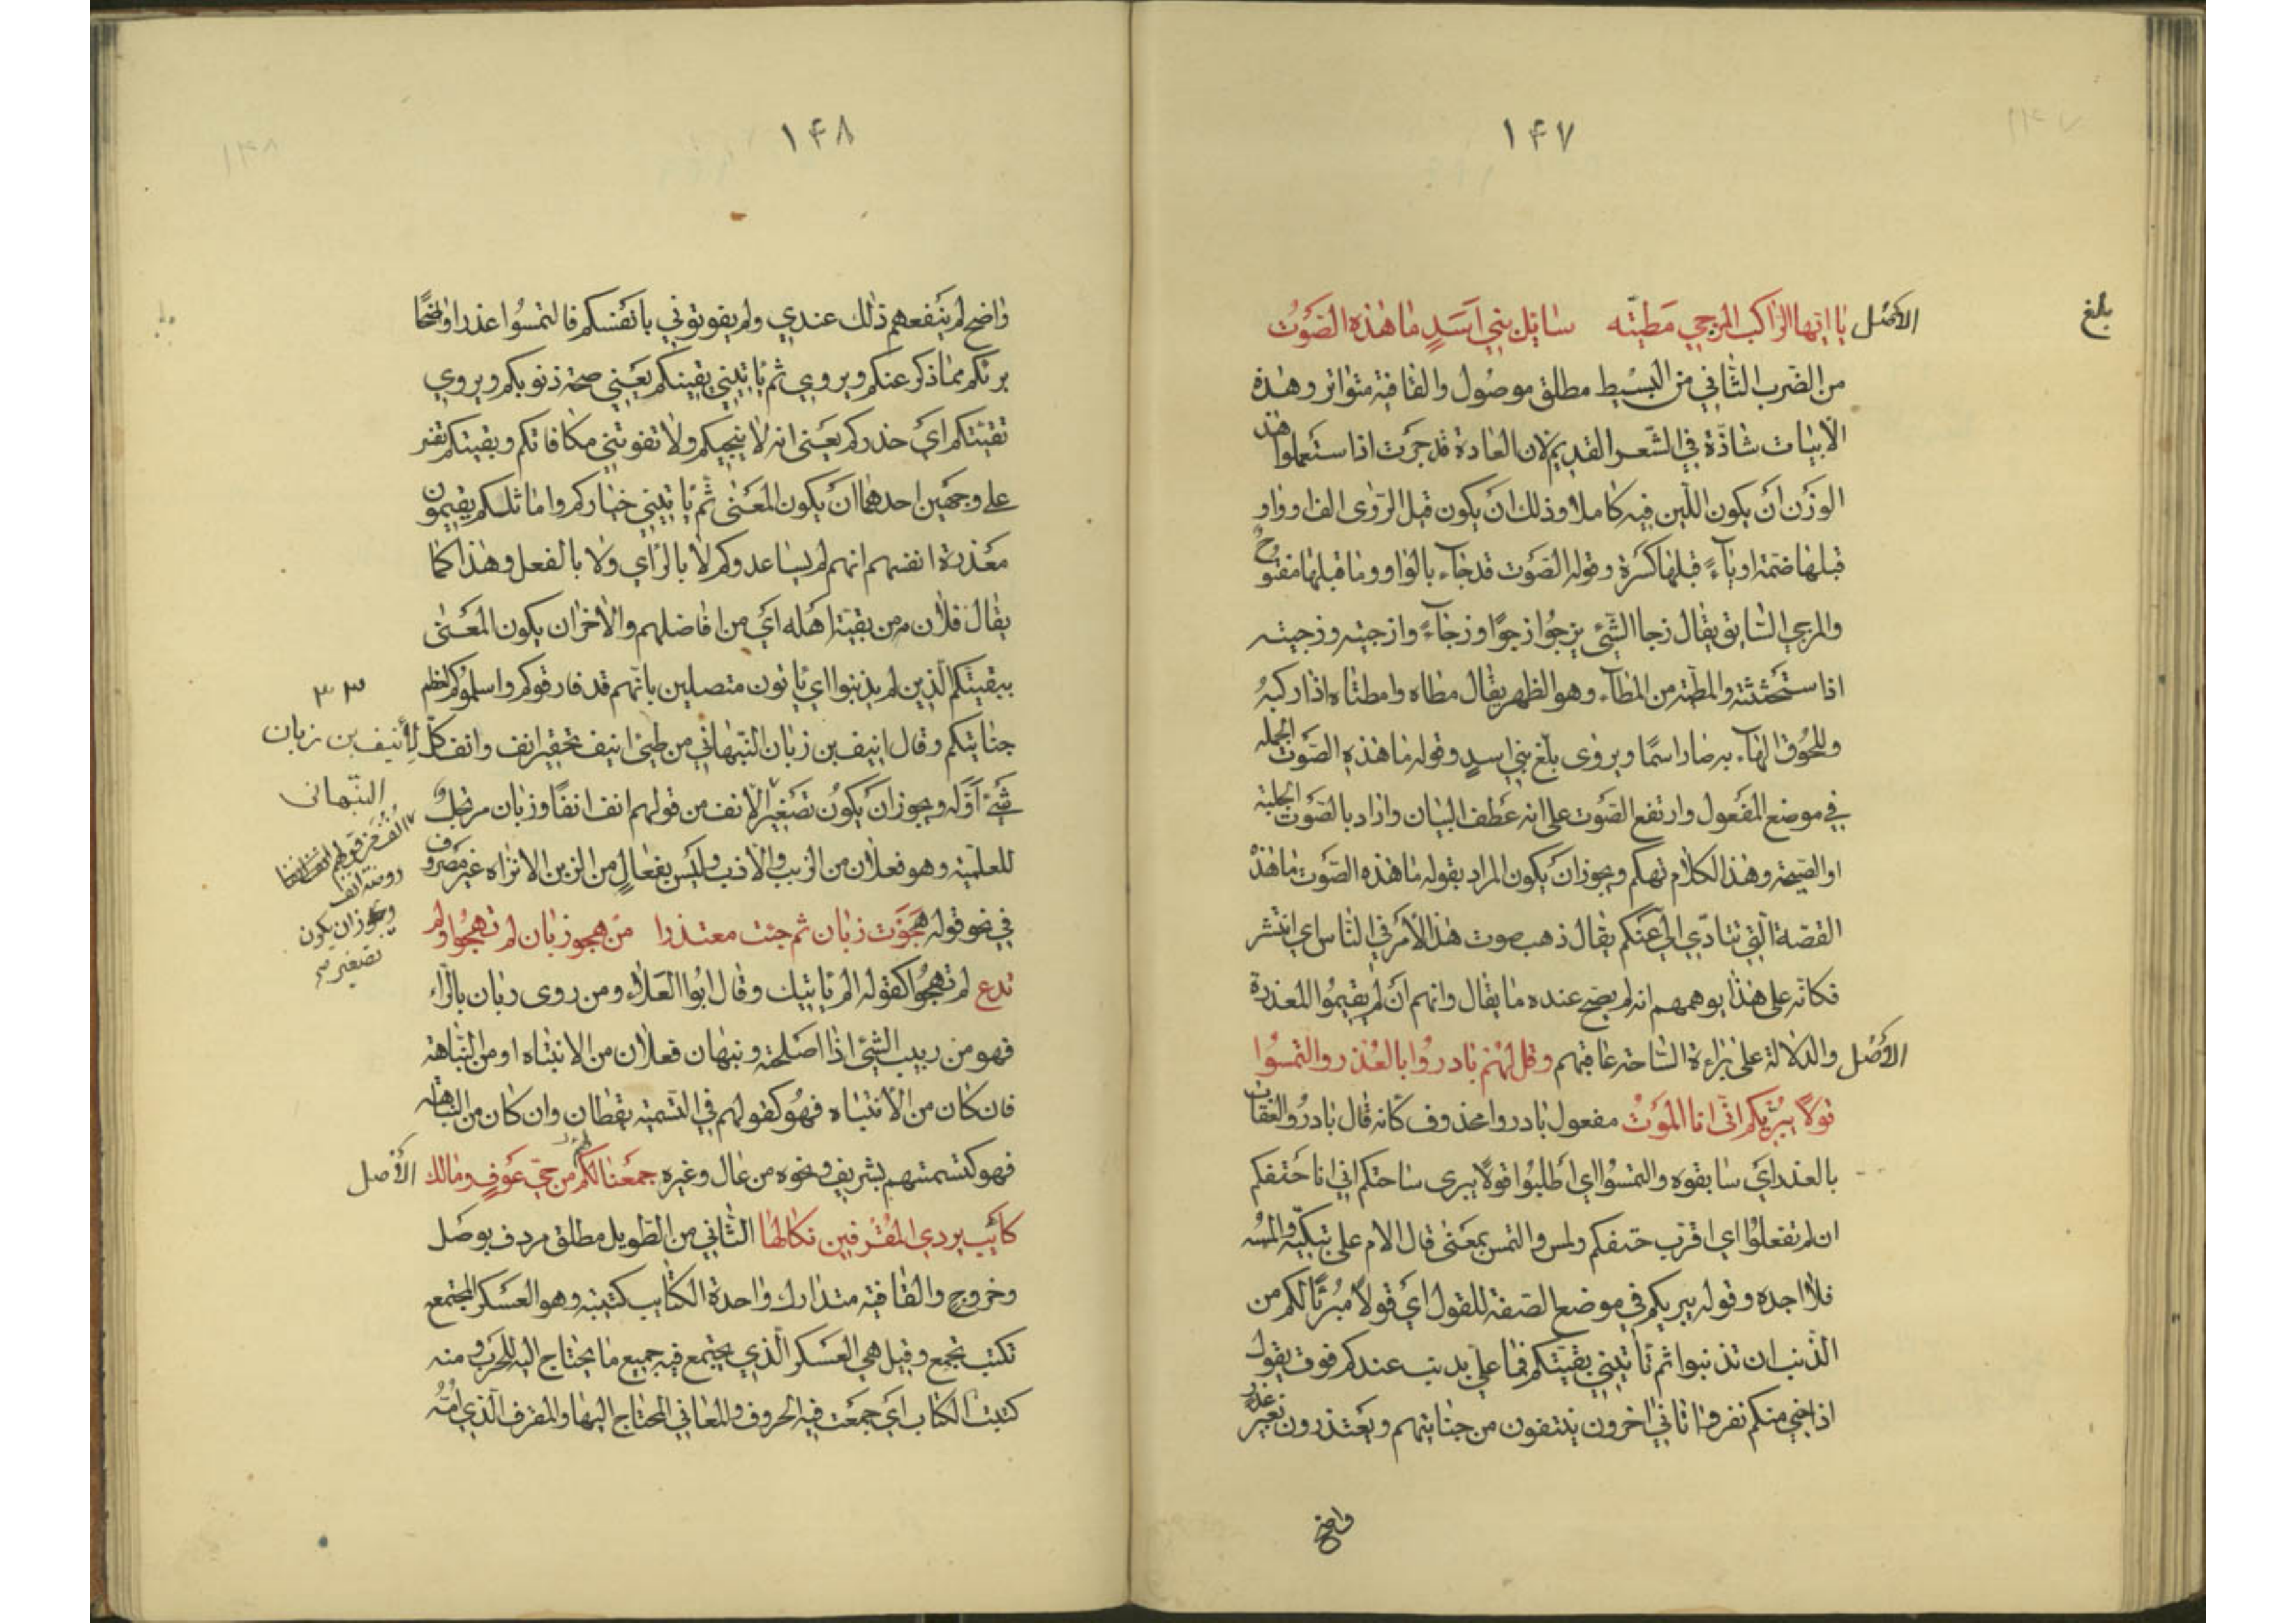 ١٤٧
بلغ
الأصل يا ايها الراكب المزجي مطيته سائل بني اسد ما هذه الصوت
من الضرب الثاني من البسيط مطلق موصول والقافية متواتر وهذه
الابيات شاذة في الشعر القديم لان العادة قد جرت اذا ستعملوا هذا
الوزن ان يكون اللين فيه كاملا وذلك ان يكون قبل الروى الف او واو
قبلها ضمة او ياء قبلها كسرة وقوله الصوت قد جاء بالواو وما قبلها مفتوح
والمزجي السايق يقال زجا الشئ يزجوا زجوا وزجاء وازجيته وزجيته
اذا ستحثثته والمطية من المطاء وهو الظهر يقال مطاه وامطاه اذا ركبه
وللحوق الهاء به صار اسما ويروى بلغ بني اسد وقوله ما هذه الصوت الجمله
في موضع المفعول وارتفع الصوت على انه عطف البيان واراد بالصوت الجلبة
او الصيحة وهذا الكلام تهكم ويجوز ان يكون المراد بقوله ما هذه الصوت ما هذه
القصة التي تتادي الي عنكم يقال ذهب صوت هذا الأمر في الناس اي انتشر
فكانه على هذا يوهمهم انه لم يصح عنده ما يقال وانهم ان لم يقيموا المعذرة
الأصل والدلالة على براءة الساحة عاقبهم وقل لهم بادروا بالعذر والتمسوا
قولا يبريكم انى انا الموت مفعول بادروا محذوف كانه قال بادروا العقاب
بالعذر اي سابقوه والتمسوا اي اطلبوا قولا يبرى ساحتكم اني انا حتفكم
ان لم تفعلوا اي اقرب حتفكم ولمس والتمس بمعنى قال الام على تبكيه والمسه
فلا اجده وقوله يبريكم في موضع الصفة للقول اي قولا مبرئا لكم من
الذنب ان تذنبوا ثم تأتيني بقيتكم فما علي بذنب عندكم فوت يقول
اذا جنى منكم نفر واتاني اخرون ينتفون من جنايتهم ويعتذرون بغير عذر
واضح
١٤٨
واضح لم ينفعهم ذلك عندي ولم يفوتوني بانفسكم فالتمسوا عذرا واضحا
برئكم مما ذكر عنكم ويروى ثم ياتيني يقينكم يعني صحة ذنوبكم ويروي
تقيتكم اي حذركم يعني انه لا ينجيكم ولا تفوتني مكافاتكم وبقيتكم تفسر
على وجهين احدهما ان يكون المعنى ثم ياتيني خياركم واماثلكم يقيمون
معذرة انفسهم انهم لم يساعدوكم لا بالراي ولا بالفعل وهذا كما
يقال فلان من بقية اهله اي من افاضلهم والاخر ان يكون المعنى
ببقيتكم الذين لم يذنبوا اي ياتون متصلين بانهم قد فارقوكم واسلموكم لعظم
جنايتكم وقال انيف بن زبان النبهاني من طيئ انيف تحقير انف وانف كل
شئ اوله ويجوز ان يكون تصغير الانف من قولهم انف انفا وزبان مرتجل
للعلمية وهو فعلان من الزبب والاذب وليس بفعال من الزبن الا تراه غير مصروف
في نحو قوله هجوت زبان ثم جئت معتذرا من هجو زبان لم تهجوا ولم
تدع لم تهجوا كقوله الم ياتيك وقال ابوا العلاء ومن روى ربان بالراء
فهو من رببت الشئ اذا اصلحته ونبهان فعلان من الانتباه او من النباهة
فان كان من الانتباه فهو كقولهم في التسمية يقظان وان كان من النباهة
فهو كتسمتهم بشريف ونحوه من عال وغيره جمعنا لكم من حي عوف ومالك الأصل
كتائب يردي المقرفين نكالها الثاني من الطويل مطلق مردف بوصل
وخروج والقافية متدارك واحدة الكتايب كتيبة وهو العسكر المجتمعه
تكتب تجمع وقيل هي العسكر الذي يجتمع فيه جميع ما يحتاج اليه للحرب ومنه
كتبت الكتاب اي جمعت فيه الحروف والمعاني المحتاج اليها والمقرف الذي امه
٣٣
لأنيف بن زبان
النبهانى
روضة انف
ويجوز ان يكون
تصغير